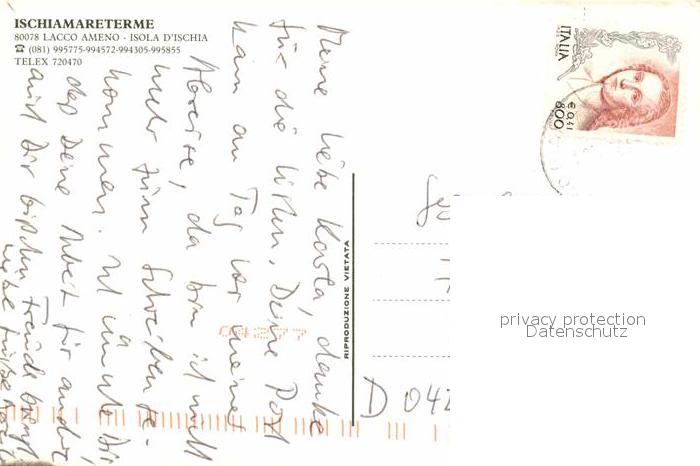 ISCHIAMARETERME
80078 LACCO AMENO - ISOLA D'ISCHIA
☎ (081) 995775-994572-994305-995855
TELEX 720470
Meine liebe Karla, danke
für die Listen. Deine Post
kam an Tag vor meiner
Abreise, da bin ich nicht
mehr zum Schreiben ge-
kommen. Ich
das Deine Arbeit für
auch Dir bißchen Freude bringt
Liebe Grüße
RIPRODUZIONE VIETATA
ITALIA
€ 0,41
800
D 042
04277
privacy protection
Datenschutz